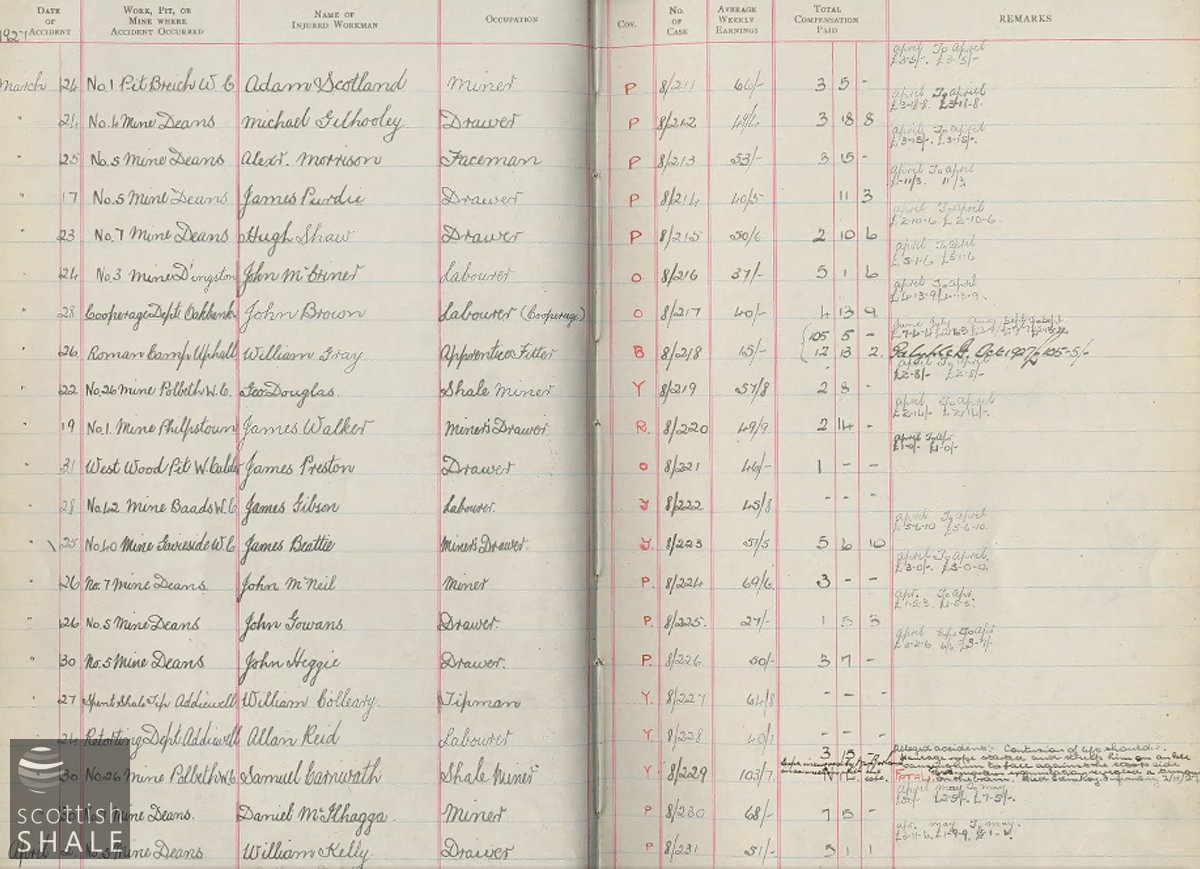 DATE OF ACCIDENT WORK, PIT, OR MINE WHERE ACCIDENT OCCURRED NAME OF INJURED WORKMAN OCCUPATION COY. NO. OF CASE AVERAGE WEEKLY EARNINGS TOTAL COMPENSATION PAID REMARKS
1927
April To April
March 24 No.1 Pit Breich W.C Adam Scotland Miner P 8/211 66/- 3 5 -
April To April
£3-18-8. £3-18-8.
" 24 No.4 Mine Deans Michael Gilhooley Drawer P 8/212 49/4 3 18 8
April To April
£3-15/-. £3-15/-.
" 25 No.5 Mine Deans Alexr. Morrison Faceman P 8/213 53/- 3 15 -
April To April
11/3. 11/3.
" 17 No.5 Mine Deans James Purdie Drawer P 8/214 40/5 11 3
April To April
£2-10-6. £2-10-6.
" 23 No.7 Mine Deans Hugh Shaw Drawer P 8/215 50/6 2 10 6
April To April
£5-1-6 £5-1-6
" 24 No.3 Mine D'ingston John Labourer O 8/216 37/- 5 1 6
April To April
£4-13-9 £4-13-9.
" 28 Cooperage Dept. Oakbank John Brown Labourer (Cooperage) O 8/217 40/- 4 13 9
105 5 -
" 26 Roman Camp Uphall William Gray Apprentice Fitter B 8/218 15/- 12 13 2. Oct. 1927 105-5/-
April To April
£2-8/- £2-8/-
" 22 No.26 Mine Polbeth W.C. Geo. Douglas. Shale Miner Y 8/219 57/8 2 8 -
April To April
£2-14/- £2-14/-.
" 19 No.1. Mine Philpstown James Walker Miner's Drawer. R. 8/220 49/9 2 14 -
April To Apr.
£1-0/- £1-0/-
" 31 West Wood Pit W. Calder James Preston Drawer O 8/221 46/- 1 - -
" 28 No.42 Mine Baads W.C James Gibson Labourer. Y 8/222 45/8 - - -
April To April
£5-6-10 £5-6-10.
" 25 No.40 Mine W.C James Beattie Miner's Drawer. Y 8/223 51/5 5 6 10
April To April.
£3-0/-. £3-0-0.
" 26 No.7 Mine Deans John McNeil Miner P. 8/224 69/6 3 - -
Apr. To Apr.
£1-5-3. £1-5-3.
" 26 No.5 Mine Deans John Gowans. Drawer. P. 8/225. 27/- 1 5 3
April To Apr
£3-7/-
" 30 No.5 Mine Deans John Heggie Drawer. P. 8/226 50/- 3 7 -
" 27 Spent Shale Tip Addiewell William Colleary. Tipman Y. 8/227 64/8 - - -
" 24 Retorting Dept Addiewell Allan Reid Labourer Y. 8/228 40/1 - - -
3 15 - Alleged accident: Contusion of left shoulder.
30 No.26 Mine Polbeth W.C. Samuel Carnwath Shale Miner Y 8/229 103/7
April May To May
£2-5/-. £7-5/-.
30 Mine Deans. Daniel McIlhagga. Miner P 8/230 68/- 7 5 -
Apr. May To May.
April Mine Deans William Kelly Drawer P 8/231 51/- 5 1 1
Scottish
SHALE